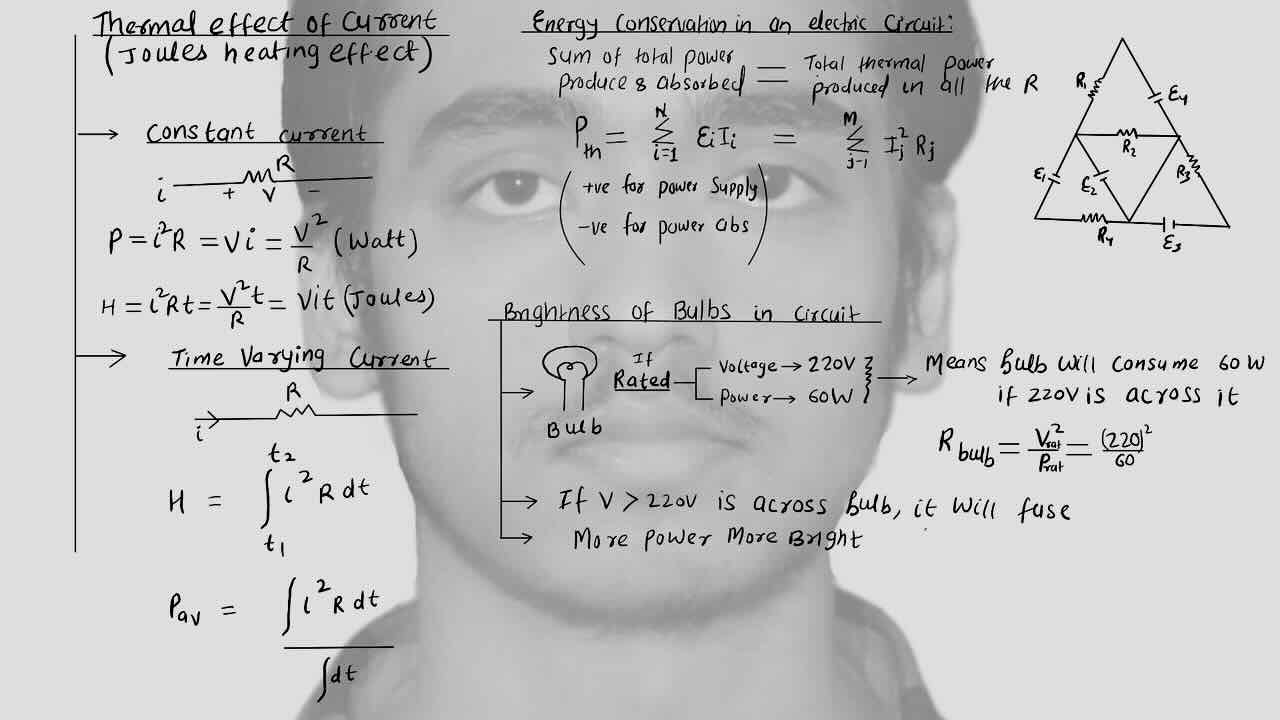 Thermal effect of Current
(Joules heating effect)
→ Constant current
R
i + V −
P = i²R = Vi = V²/R (Watt)
H = i²Rt = V²t/R = Vit (Joules)
→ Time Varying Current
R
i
H = ∫ t₁ t₂ i² R dt
Pav = ∫ i² R dt / ∫dt
Energy Conservation in an electric Circuit:
Sum of total power = Total thermal power
produce & absorbed produced in all the R
Pth = N Σ i=1 Ɛi Ii = M Σ j-1 Ij² Rj
(+ve for power Supply
-ve for power abs)
R₁ Ɛ4
R₂
Ɛ₁ Ɛ2 R3
R4 Ɛ3
Brightness of Bulbs in Circuit
→ Bulb If Rated Voltage → 220V
Power → 60W
→ Means bulb will consume 60W
if 220V is across it
Rbulb = V²rat/Prat = (220)²/60
→ If V > 220V is across bulb, it will fuse
→ More power More Bright